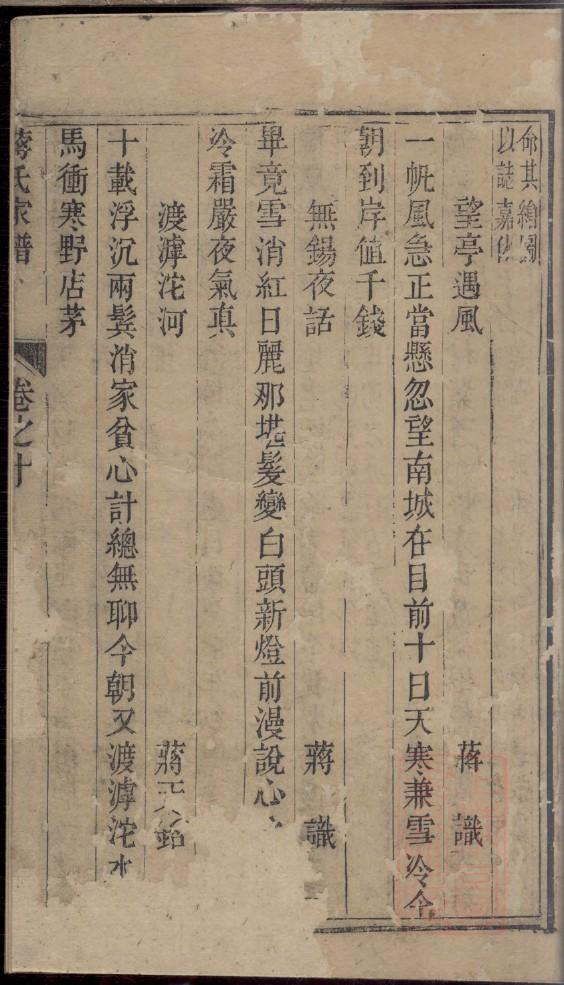 命其繪圖
以誌嘉
望亭遇風　蔣　識
一帆風急正當懸忽望南城在目前十日天寒兼雪冷今
朝到岸值千錢
無錫夜話　蔣　識
畢竟雪消紅日麗那堪髮變白頭新燈前漫說心
冷霜嚴夜氣真
渡滹沱河　蔣
十載浮沉兩鬂消家貧心計總無聊今朝又渡滹沱水
馬衝寒野店茅
蔣氏家譜　卷之十